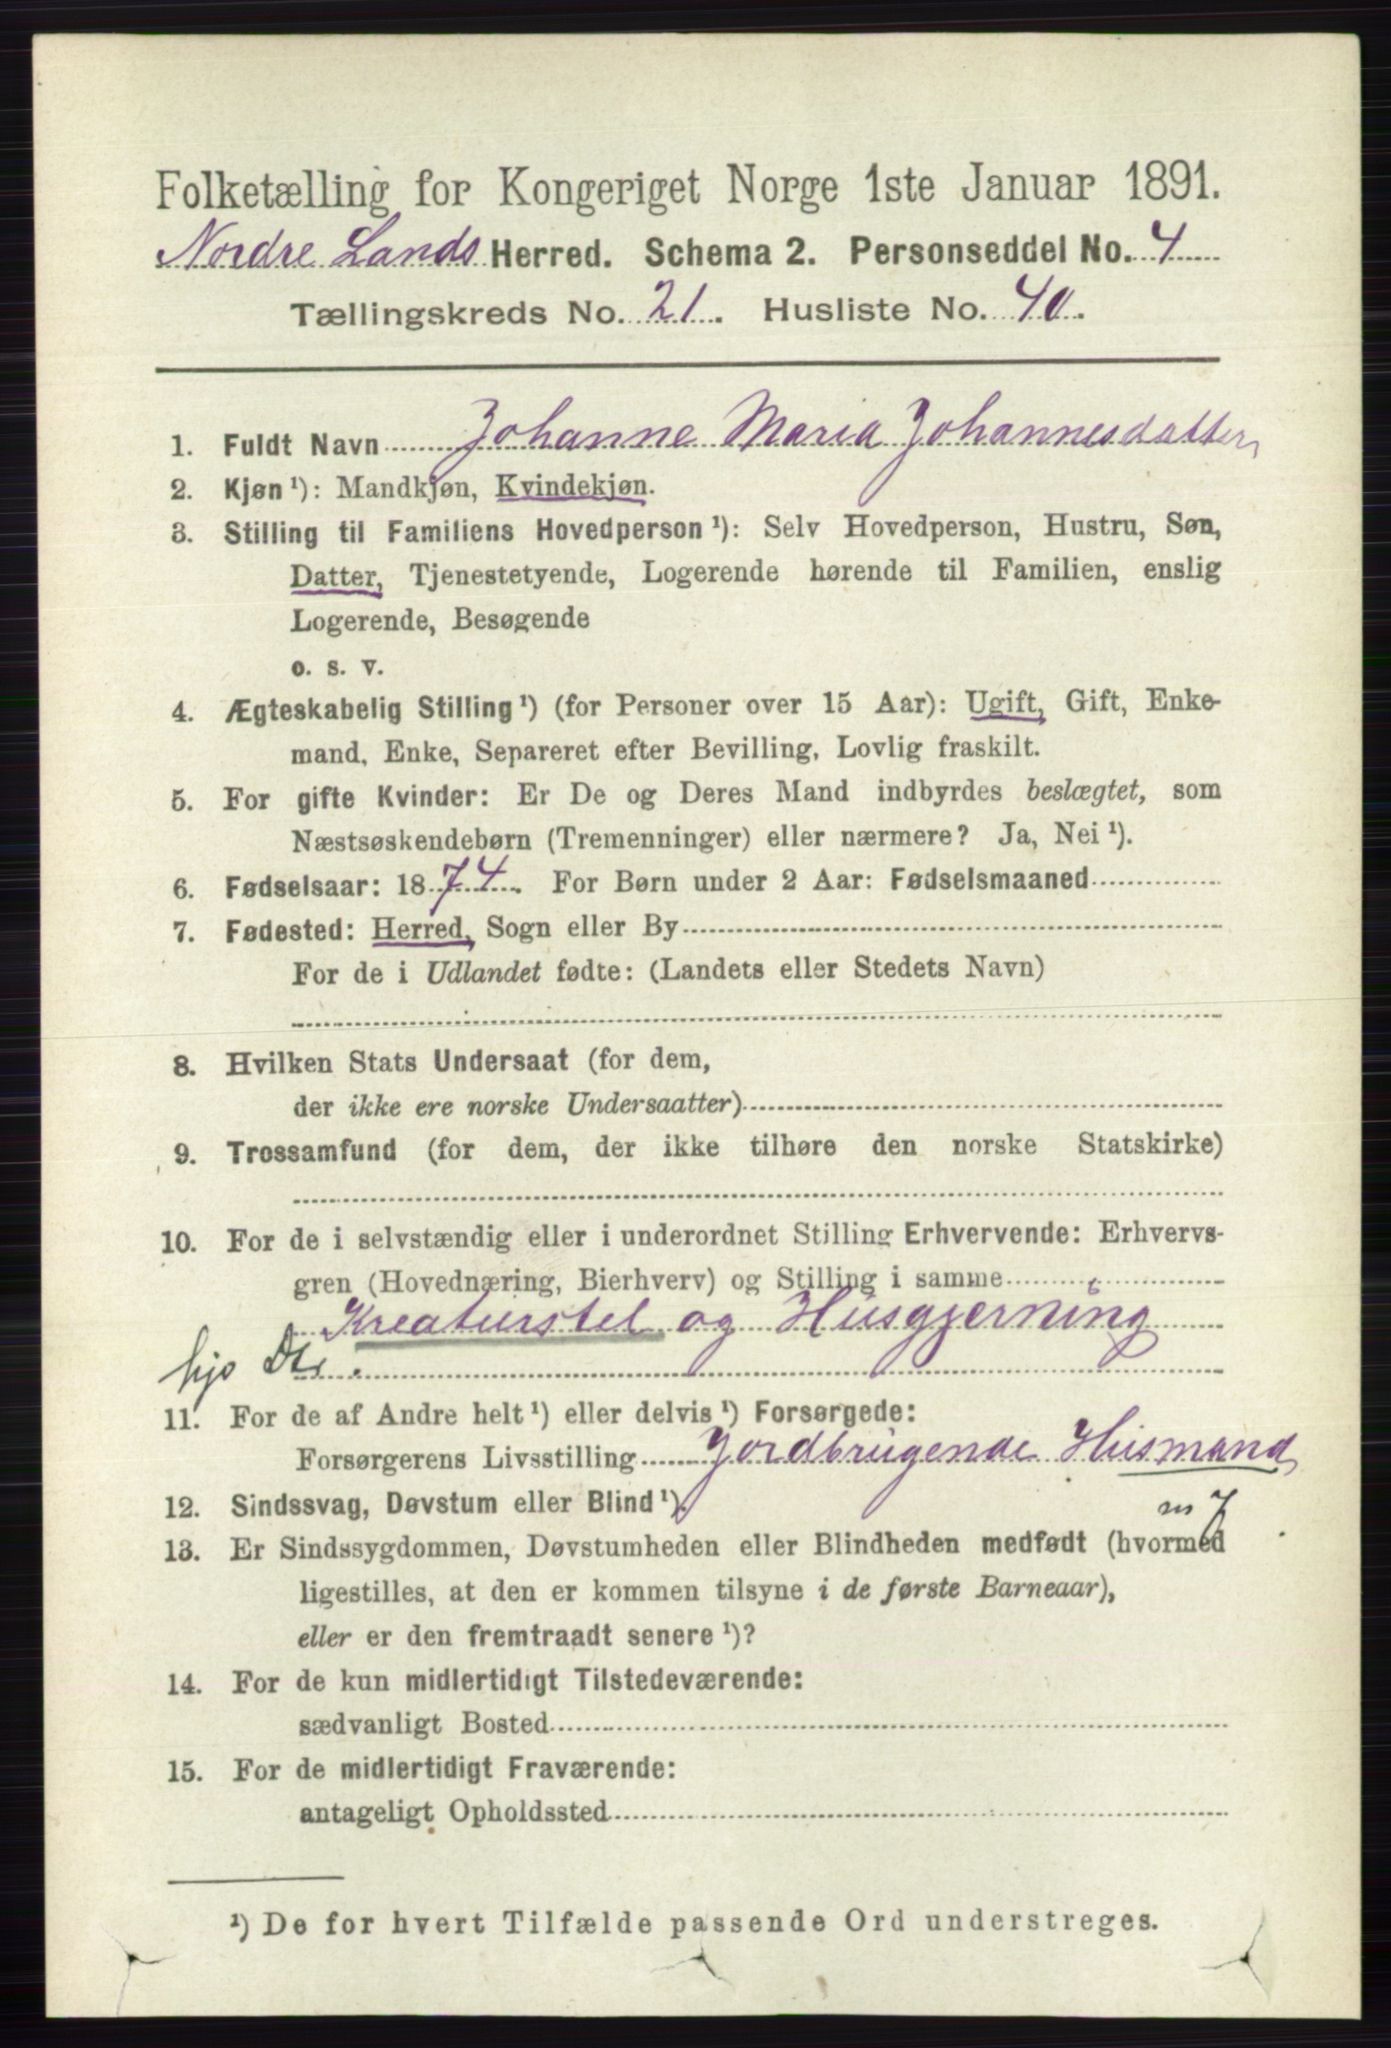 Folketælling for Kongeriget Norge 1ste Januar 1891.
Nordre Lands Herred. Schema 2. Personseddel No. 4
Tællingskreds No. 21. Husliste No. 40.
1. Fuldt Navn Johanne Maria Johannesdatter,
2. Kjøn ¹): Mandkjøn, Kvindekjøn.
3. Stilling til Familiens Hovedperson ¹): Selv Hovedperson, Hustru, Søn,
Datter, Tjenestetyende, Logerende hørende til Familien, enslig
Logerende, Besøgende
o. s. v.
4. Ægteskabelig Stilling ¹) (for Personer over 15 Aar): Ugift, Gift, Enke-
mand, Enke, Separeret efter Bevilling, Lovlig fraskilt.
5. For gifte Kvinder: Er De og Deres Mand indbyrdes beslægtet, som
Næstsøskendebørn (Tremenninger) eller nærmere? Ja, Nei ¹).
6. Fødselsaar: 1874. For Børn under 2 Aar: Fødselsmaaned
7. Fødested: Herred, Sogn eller By
For de i Udlandet fødte: (Landets eller Stedets Navn)
8. Hvilken Stats Undersaat (for dem,
der ikke ere norske Undersaatter)
9. Trossamfund (for dem, der ikke tilhøre den norske Statskirke)
10. For de i selvstændig eller i underordnet Stilling Erhvervende: Erhvervs-
gren (Hovednæring, Bierhverv) og Stilling i samme
Kreaturstel og Husgjerning
hjo Dtr.
11. For de af Andre helt ¹) eller delvis ¹) Forsørgede:
Forsørgerens Livsstilling Jordbrugende Husmand,
12. Sindssvag, Døvstum eller Blind ¹).
m J
13. Er Sindssygdommen, Døvstumheden eller Blindheden medfødt (hvormed
ligestilles, at den er kommen tilsyne i de første Barneaar),
eller er den fremtraadt senere ¹)?
14. For de kun midlertidigt Tilstedeværende:
sædvanligt Bosted
15. For de midlertidigt Fraværende:
antageligt Opholdssted
¹) De for hvert Tilfælde passende Ord understreges.